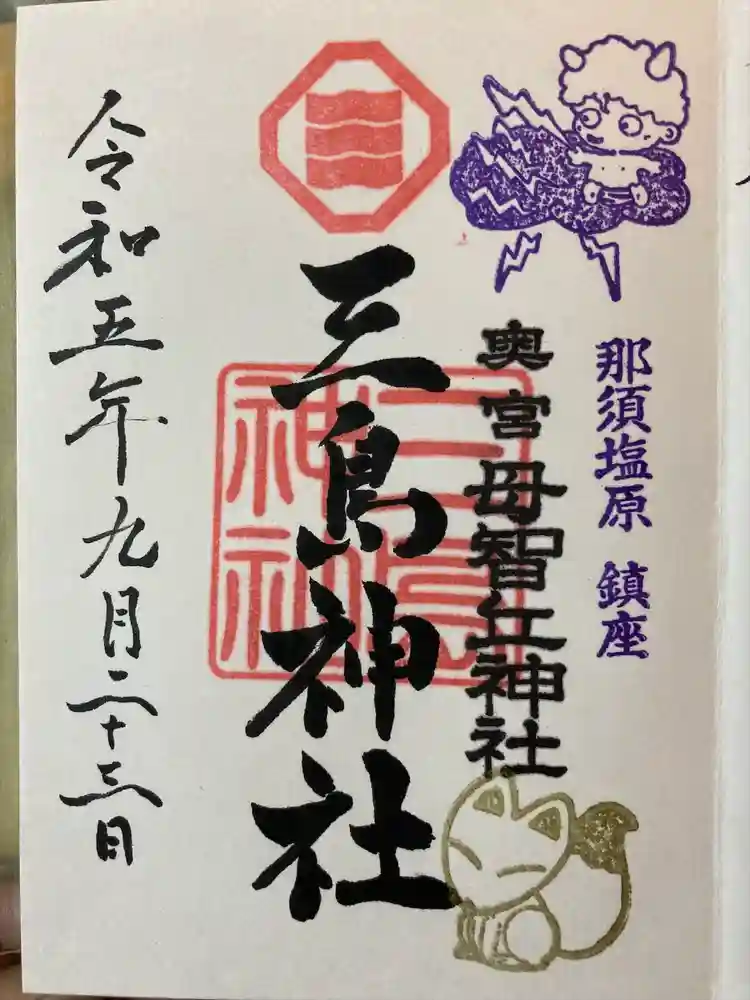 那須塩原 鎮座
奥宮母智丘神社
三島神社
三島神社
令和五年九月二十三日